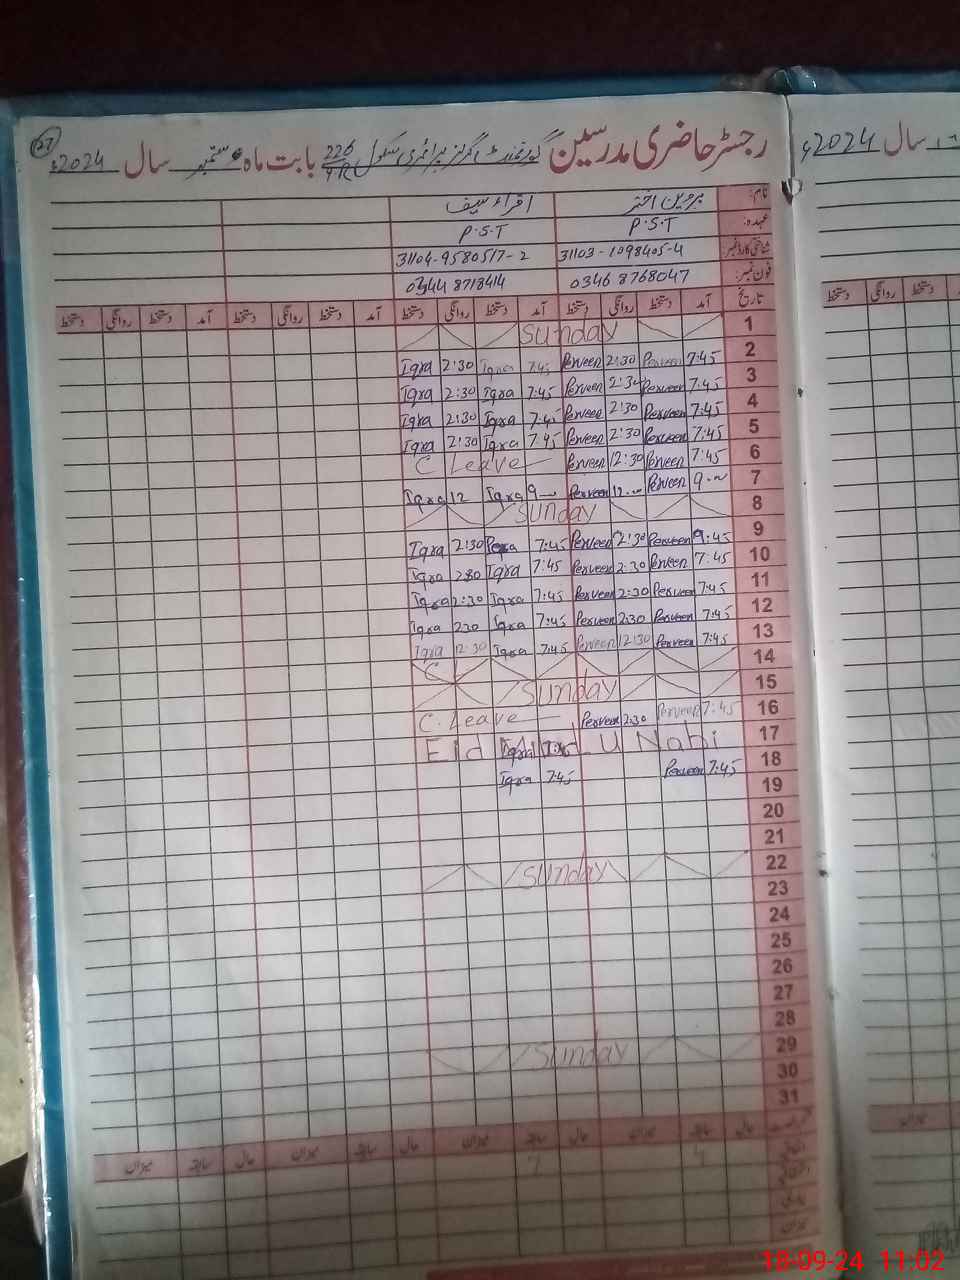 رجسٹر حاضری مدرسین گورنمنٹ گرلز پرائمری سکول 226/9R بابت ماہ ستمبر سال 2024ء
27
نام: پروین اختر اقراء سیف
عہدہ: P.S.T P.S.T
شناختی کارڈ نمبر: 31103-1098405-4 31104-9580517-2
فون نمبر: 0346 8768047 0344 8718414
تاریخ آمد دستخط روانگی دستخط آمد دستخط روانگی دستخط آمد دستخط روانگی دستخط آمد دستخط روانگی دستخط
1 Sunday
2 7:45 Perveen 2:30 Perveen 7:45 Iqra 2:30 Iqra
3 7:45 Perveen 2:30 Perveen 7:45 Iqra 2:30 Iqra
4 7:45 Perveen 2:30 Perveen 7:45 Iqra 2:30 Iqra
5 7:45 Perveen 2:30 Perveen 7:45 Iqra 2:30 Iqra
6 7:45 Perveen 12:30 Perveen C Leave
7 9 Perveen 12 Perveen 9 Iqra 12 Iqra
8 Sunday
9 9:45 Perveen 2:30 Perveen 7:45 2:30 Iqra
10 7:45 Perveen 2:30 Perveen 7:45 Iqra 230 Iqra
11 7:45 Perveen 2:30 Perveen 7:45 Iqra 2:30 Iqra
12 7:45 Perveen 2:30 Perveen 7:45 Iqra 230 Iqra
13 7:45 Perveen 12:30 Perveen 7:45 Iqra 12:30 Iqra
14 C L
15 Sunday
16 7:45 Perveen 2:30 Perveen C. Leave
17 Eid U Nabi
18 7:45 Perveen 7:45 Iqra
19
20
21
22 Sunday
23
24
25
26
27
28
29 Sunday
30
31
حال سابقہ میزان حال سابقہ میزان حال سابقہ میزان حال سابقہ میزان
میزان
سال 2024ء
دستخط روانگی دستخط
میزان
18-09-24 11:02